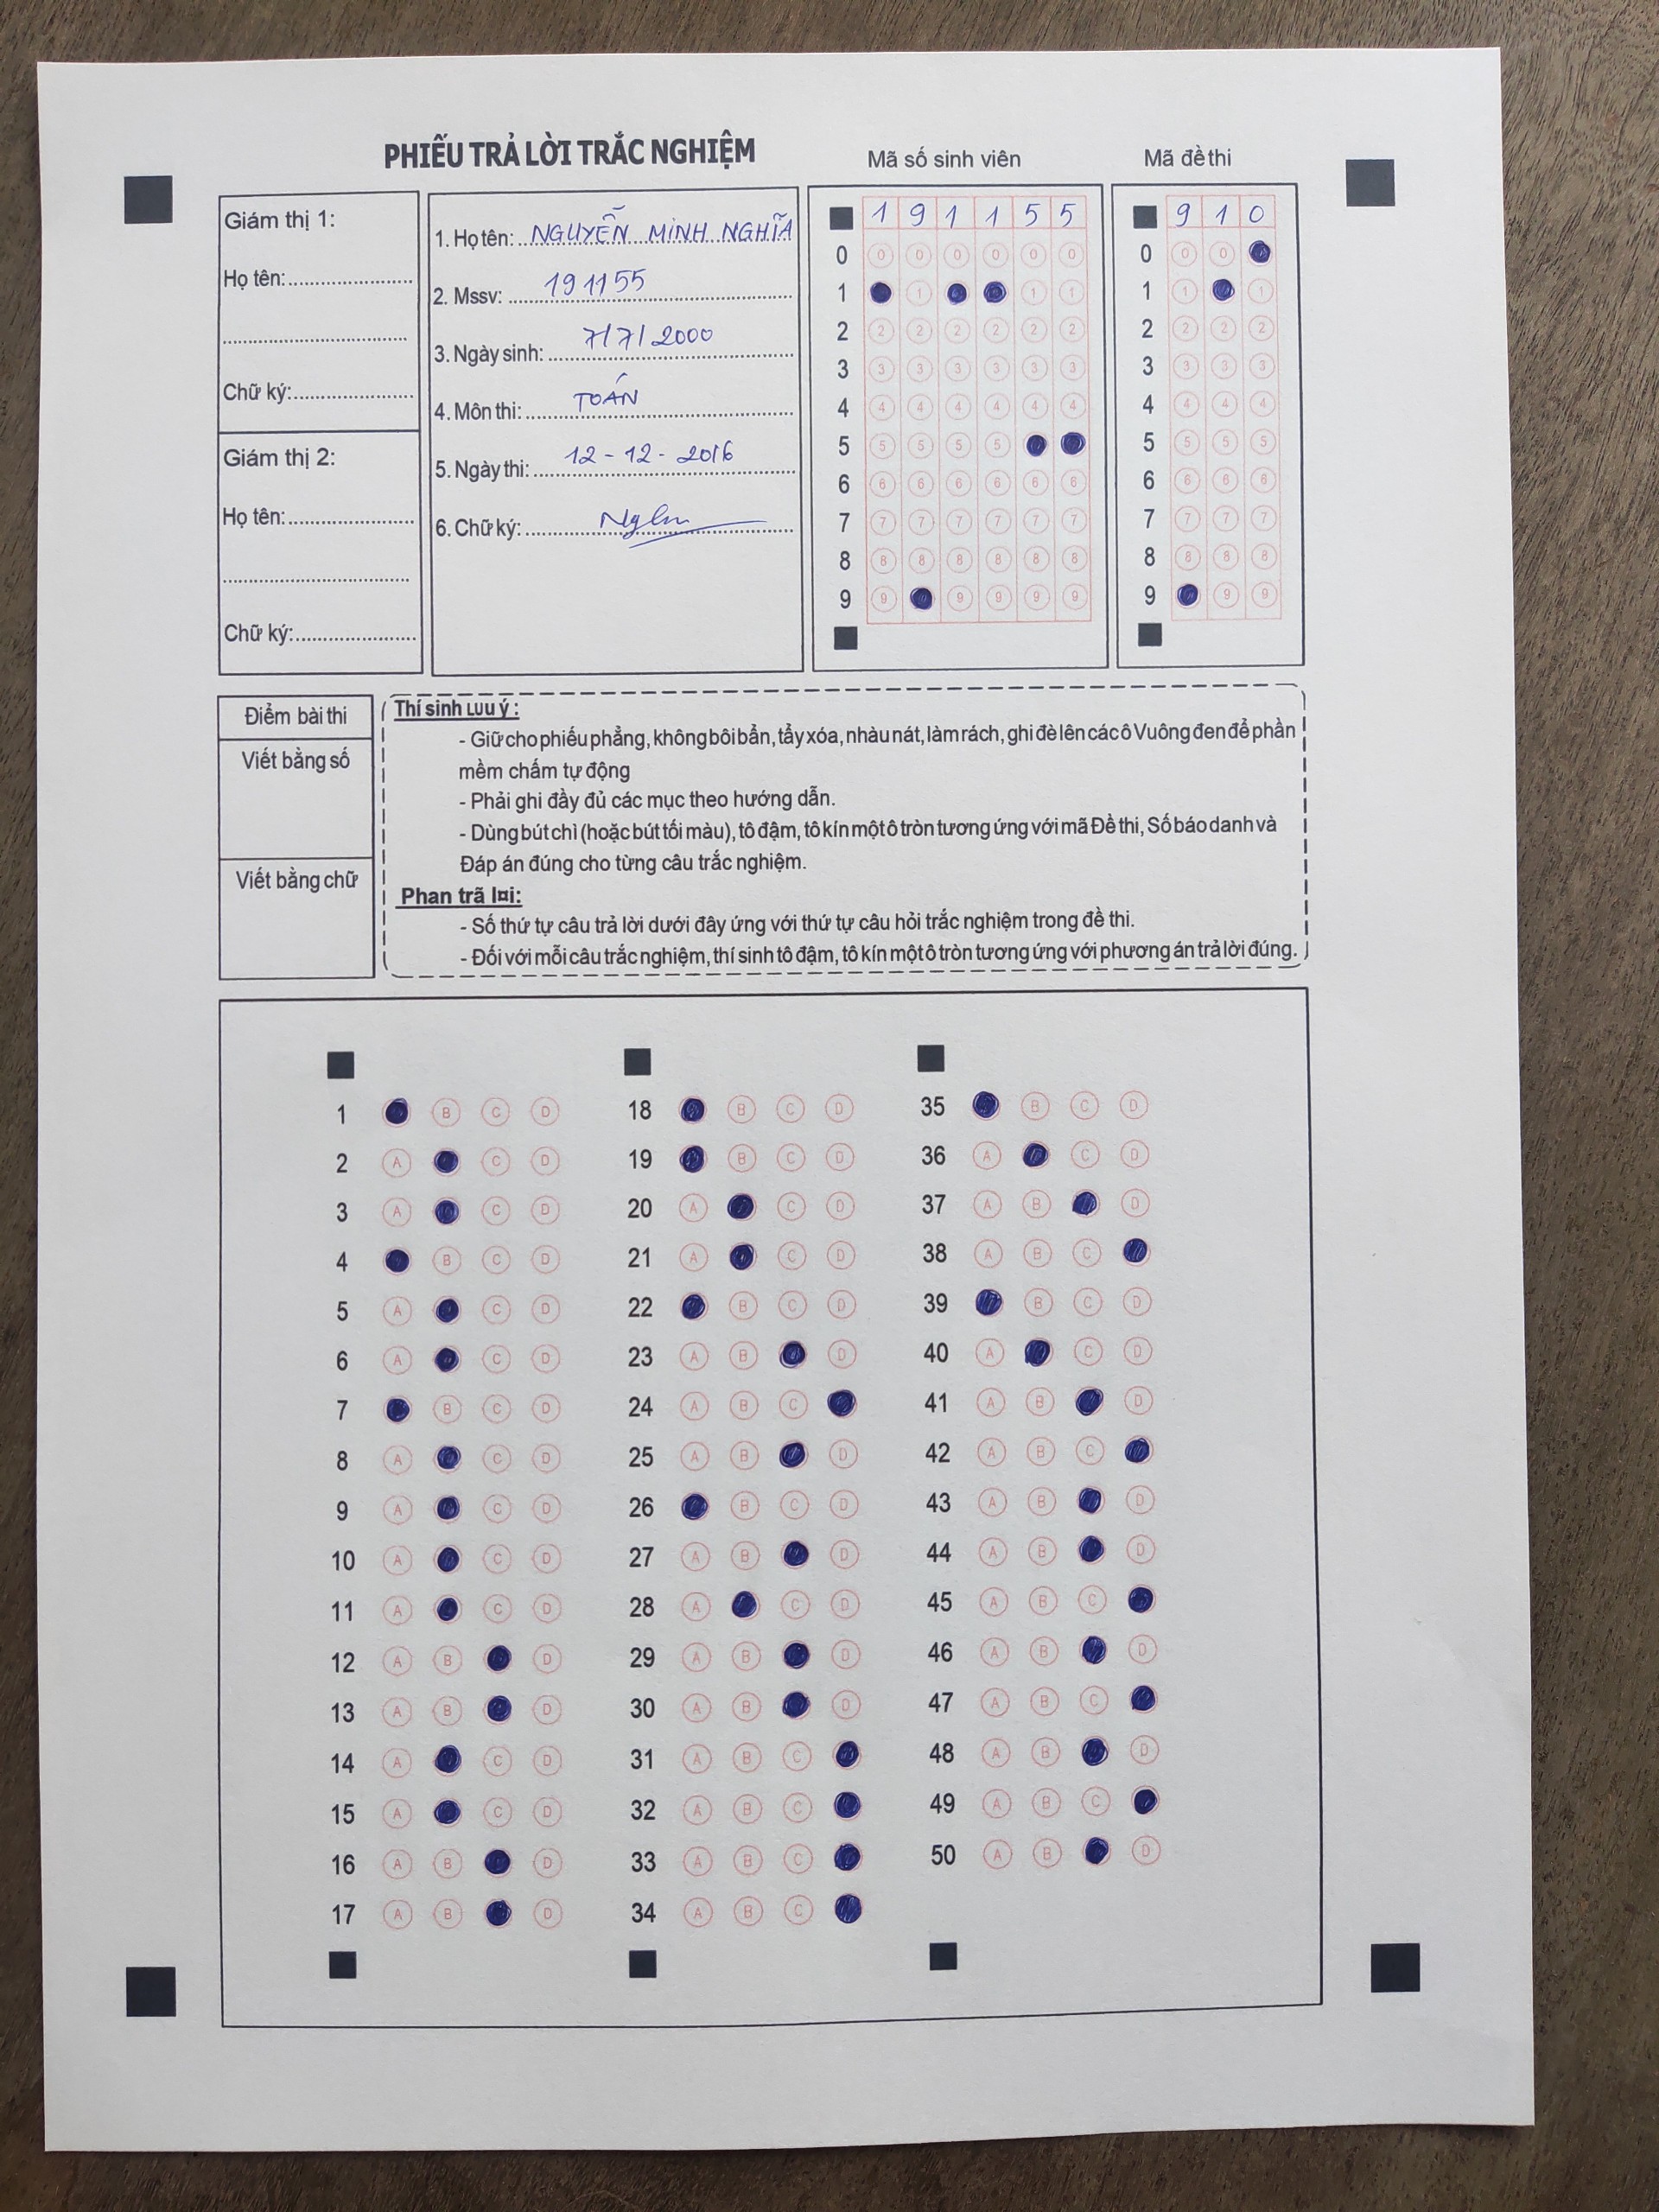 PHIẾU TRẢ LỜI TRẮC NGHIỆM
Mã số sinh viên
Mã đề thi
Giám thị 1:
Họ tên:
Chữ ký:
Giám thị 2:
Họ tên:
Chữ ký:
1. Họ tên: NGUYỄN MINH NGHĨA
2. Mssv: 191155
3. Ngày sinh: 7/7/2000
4. Môn thi: TOÁN
5. Ngày thi: 12-12-2016
6. Chữ ký: Nghĩa
1 9 1 1 5 5
0 0 0 0 0 0 0
1 1 1 1
2 2 2 2 2 2 2
3 3 3 3 3 3 3
4 4 4 4 4 4 4
5 5 5 5 5
6 6 6 6 6 6 6
7 7 7 7 7 7 7
8 8 8 8 8 8 8
9 9 9 9 9 9
9 1 0
0 0 0
1 1 1
2 2 2 2
3 3 3 3
4 4 4 4
5 5 5 5
6 6 6 6
7 7 7 7
8 8 8 8
9 9 9
Điểm bài thi
Viết bằng số
Viết bằng chữ
Thí sinh LƯU ý :
- Giữ cho phiếu phẳng, không bôi bẩn, tẩy xóa, nhàu nát, làm rách, ghi đè lên các ô Vuông đen để phần
mềm chấm tự động
- Phải ghi đầy đủ các mục theo hướng dẫn.
- Dùng bút chì (hoặc bút tối màu), tô đậm, tô kín một ô tròn tương ứng với mã Đề thi, Số báo danh và
Đáp án đúng cho từng câu trắc nghiệm.
Phan trã l¤i:
- Số thứ tự câu trả lời dưới đây ứng với thứ tự câu hỏi trắc nghiệm trong đề thi.
- Đối với mỗi câu trắc nghiệm, thí sinh tô đậm, tô kín một ô tròn tương ứng với phương án trả lời đúng.
1 B C D
2 A C D
3 A C D
4 B C D
5 A C D
6 A C D
7 B C D
8 A C D
9 A C D
10 A C D
11 A C D
12 A B D
13 A B D
14 A C D
15 A C D
16 A B D
17 A B D
18 B C D
19 B C D
20 A C D
21 A C D
22 B C D
23 A B D
24 A B C
25 A B D
26 B C D
27 A B D
28 A C D
29 A B D
30 A B D
31 A B C
32 A B C
33 A B C
34 A B C
35 B C D
36 A C D
37 A B D
38 A B C
39 B C D
40 A C D
41 A B D
42 A B C
43 A B D
44 A B D
45 A B C
46 A B D
47 A B C
48 A B D
49 A B C
50 A B D